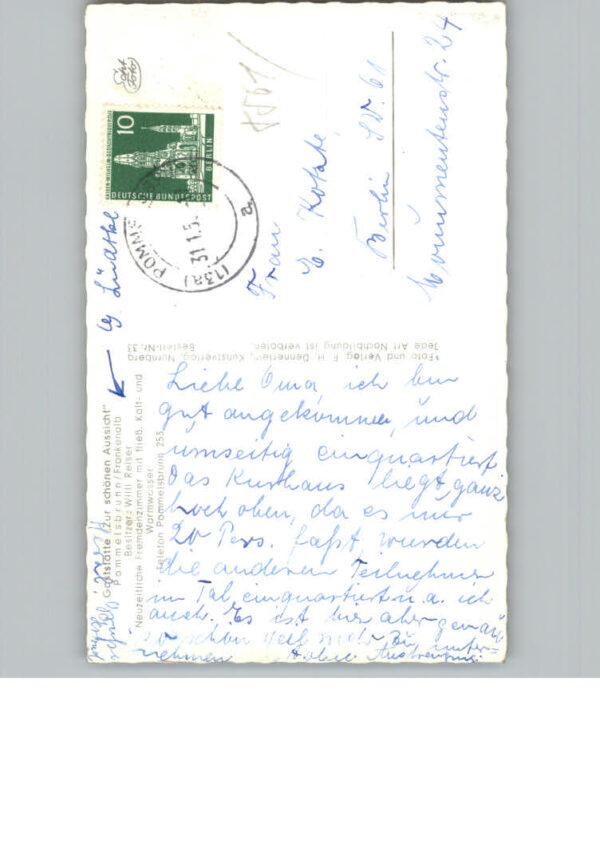 Gaststätte "Zur schönen Aussicht"
Pommelsbrunn/Frankenalb
Besitzer: Willi Reiser
Neuzeitliche Fremdenzimmer mit fließ. Kalt- und
Warmwasser
Telefon Pommelsbrunn 255
Liebe Oma, ich bin
gut angekommen, und
umseitig einquartiert.
Das Kurhaus liegt ganz
hoch oben, da es nur
20 Pers. faßt, wurden
die anderen Teilnehmer
im Tal, einquartiert u. a. ich
auch. Es ist hier aber genau
so schön weil mehr zu unter-
nehmen
*Foto und Verlag: F. H. Dennerlein, Kunstverlag, Nürnberg
Jede Art Nachbildung ist verboten. Bestell-Nr. 33
10
KAISER-WILHELM-GEDÄCHTNISKIRCHE
BERLIN
DEUTSCHE BUNDESPOST
POMME
(13a)
31.1.5
a
Echt
Foto
Frau
Berlin SW. 61
Monumentenstr. 24